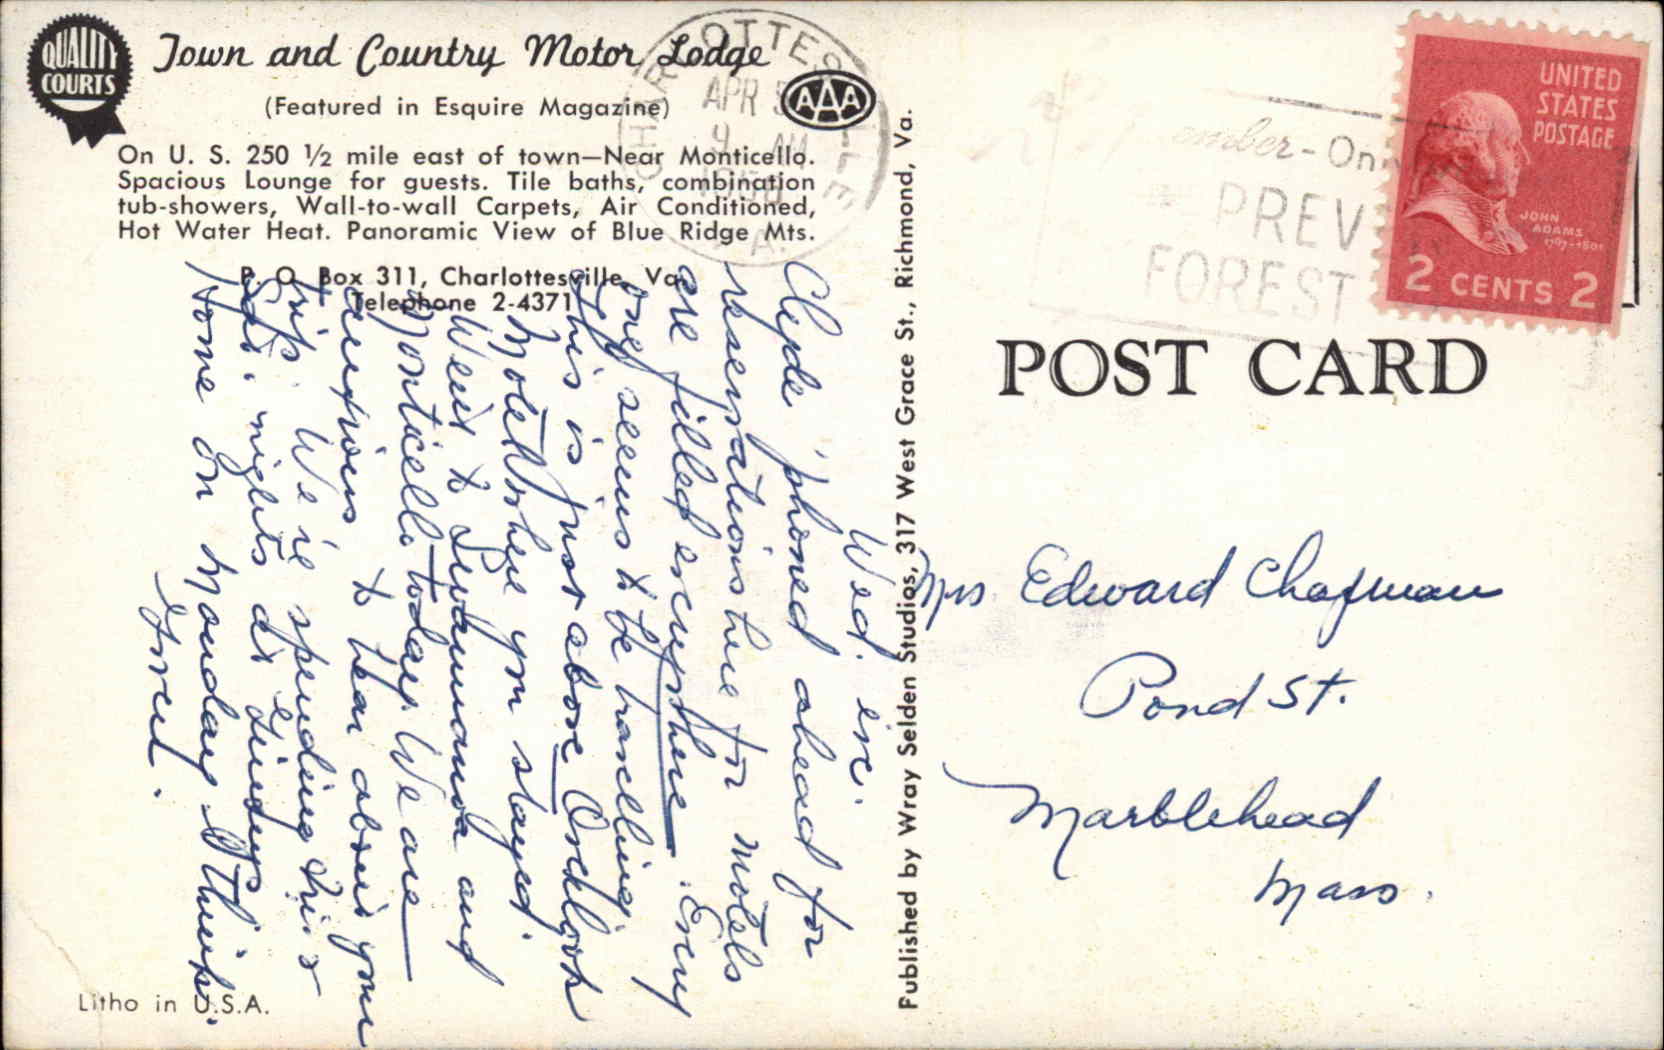 QUALITY
COURTS
Town and Country Motor Lodge
(Featured in Esquire Magazine)
AAA
On U. S. 250 ½ mile east of town—Near Monticello.
Spacious Lounge for guests. Tile baths, combination
tub-showers, Wall-to-wall Carpets, Air Conditioned,
Hot Water Heat. Panoramic View of Blue Ridge Mts.
P. O. Box 311, Charlottesville, Va.
Telephone 2-4371
CHARLOTTESVILLE
APR
9 AM
Wed. eve.
Clyde 'phoned ahead for
reservations here for motels
are filled everywhere. Every
one seems to be travelling.
This is just above Overlook
Motel where you stayed.
Went to and
Monticello today. We are
anxious to hear about your
trip. We're spending Fri &
Sat. nights at
Home on Monday I think.
Litho in U.S.A.
Published by Wray Selden Studios, 317 West Grace St., Richmond, Va.
ember-On
PREV
FOREST
UNITED
STATES
POSTAGE
JOHN
ADAMS
1797-1801
2 CENTS 2
POST CARD
Mrs Edward Chapman
Pond St.
Marblehead
Mass.